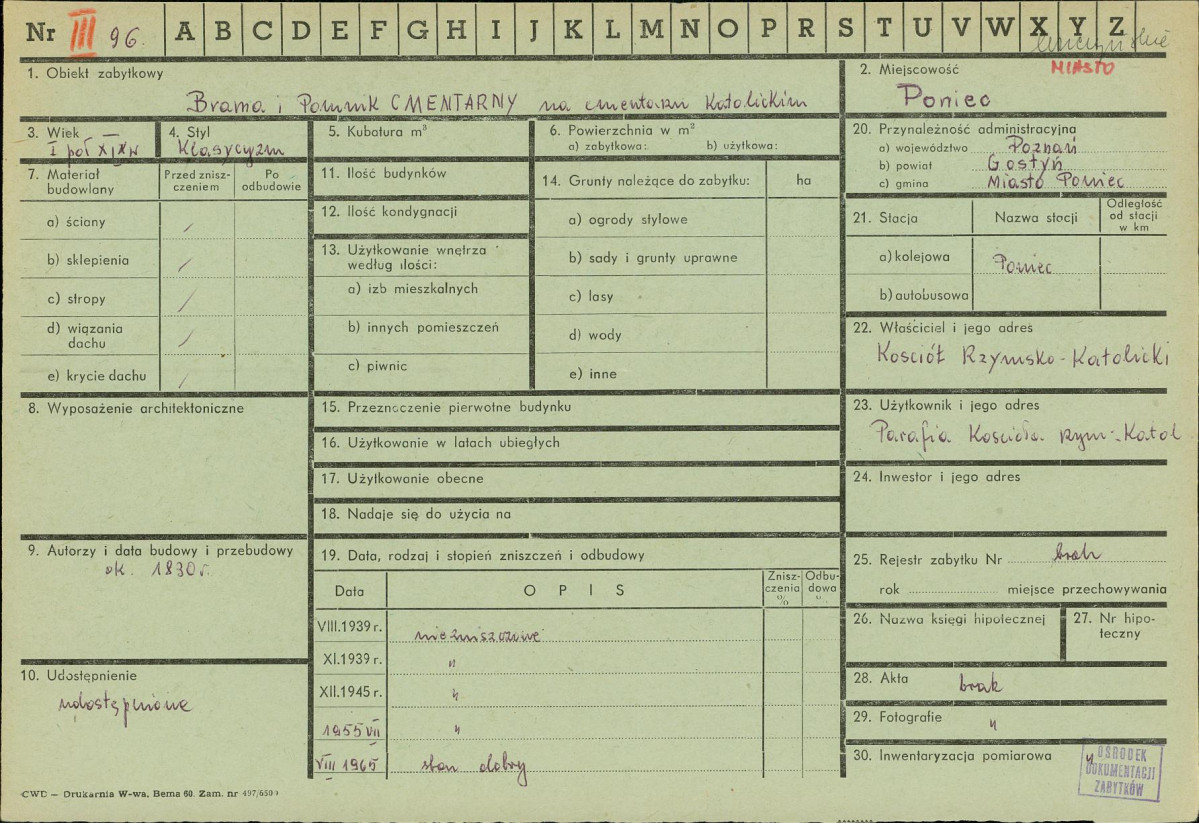 Nr III 96. A B C D E F G H I J K L M N O P R S T U V W X Y Z
1. Obiekt zabytkowy
Brama i Pomnik CMENTARNY na cmentarzu Katolickim
2. Miejscowość
MIASTO
Poniec
3. Wiek
I poł XIXw
4. Styl
Klasycyzm
5. Kubatura m³
6. Powierzchnia w m²
a) zabytkowa: b) użytkowa:
20. Przynależność administracyjna
a) województwo Poznań
b) powiat Gostyń
c) gmina Miasto Poniec
7. Materiał budowlany
Przed znisz-
czeniem
Po
odbudowie
a) ściany /
b) sklepienia /
c) stropy /
d) wiązania
dachu /
e) krycie dachu /
11. Ilość budynków
12. Ilość kondygnacji
13. Użytkowanie wnętrza
według ilości:
a) izb mieszkalnych
b) innych pomieszczeń
c) piwnic
14. Grunty należące do zabytku: ha
a) ogrody stylowe
b) sady i grunty uprawne
c) lasy
d) wody
e) inne
21. Stacja Nazwa stacji
Odległość
od stacji
w km
a) kolejowa Poniec
b) autobusowa
22. Właściciel i jego adres
Kosciół Rzymsko-Katolicki
8. Wyposażenie architektoniczne
15. Przeznaczenie pierwotne budynku
16. Użytkowanie w latach ubiegłych
17. Użytkowanie obecne
18. Nadaje się do użycia na
23. Użytkownik i jego adres
Parafia Kościoła rzym-Katol
24. Inwestor i jego adres
9. Autorzy i data budowy i przebudowy
ok. 1830 r.
19. Data, rodzaj i stopień zniszczeń i odbudowy
Data OPIS
Znisz-
czenia
%
Odbu-
dowa
%
VIII.1939 r. niezniszczone
XI.1939 r. "
XII.1945 r. "
1955 VII "
VIII 1965 stan dobry
25. Rejestr zabytku Nr brak
rok miejsce przechowywania
26. Nazwa księgi hipotecznej
27. Nr hipo-
teczny
10. Udostępnienie
udostępnione
28. Akta brak
29. Fotografie "
30. Inwentaryzacja pomiarowa "
OŚRODEK
DOKUMENTACJI
ZABYTKÓW
CWD — Drukarnia W-wa, Bema 60. Zam. nr 497/6500